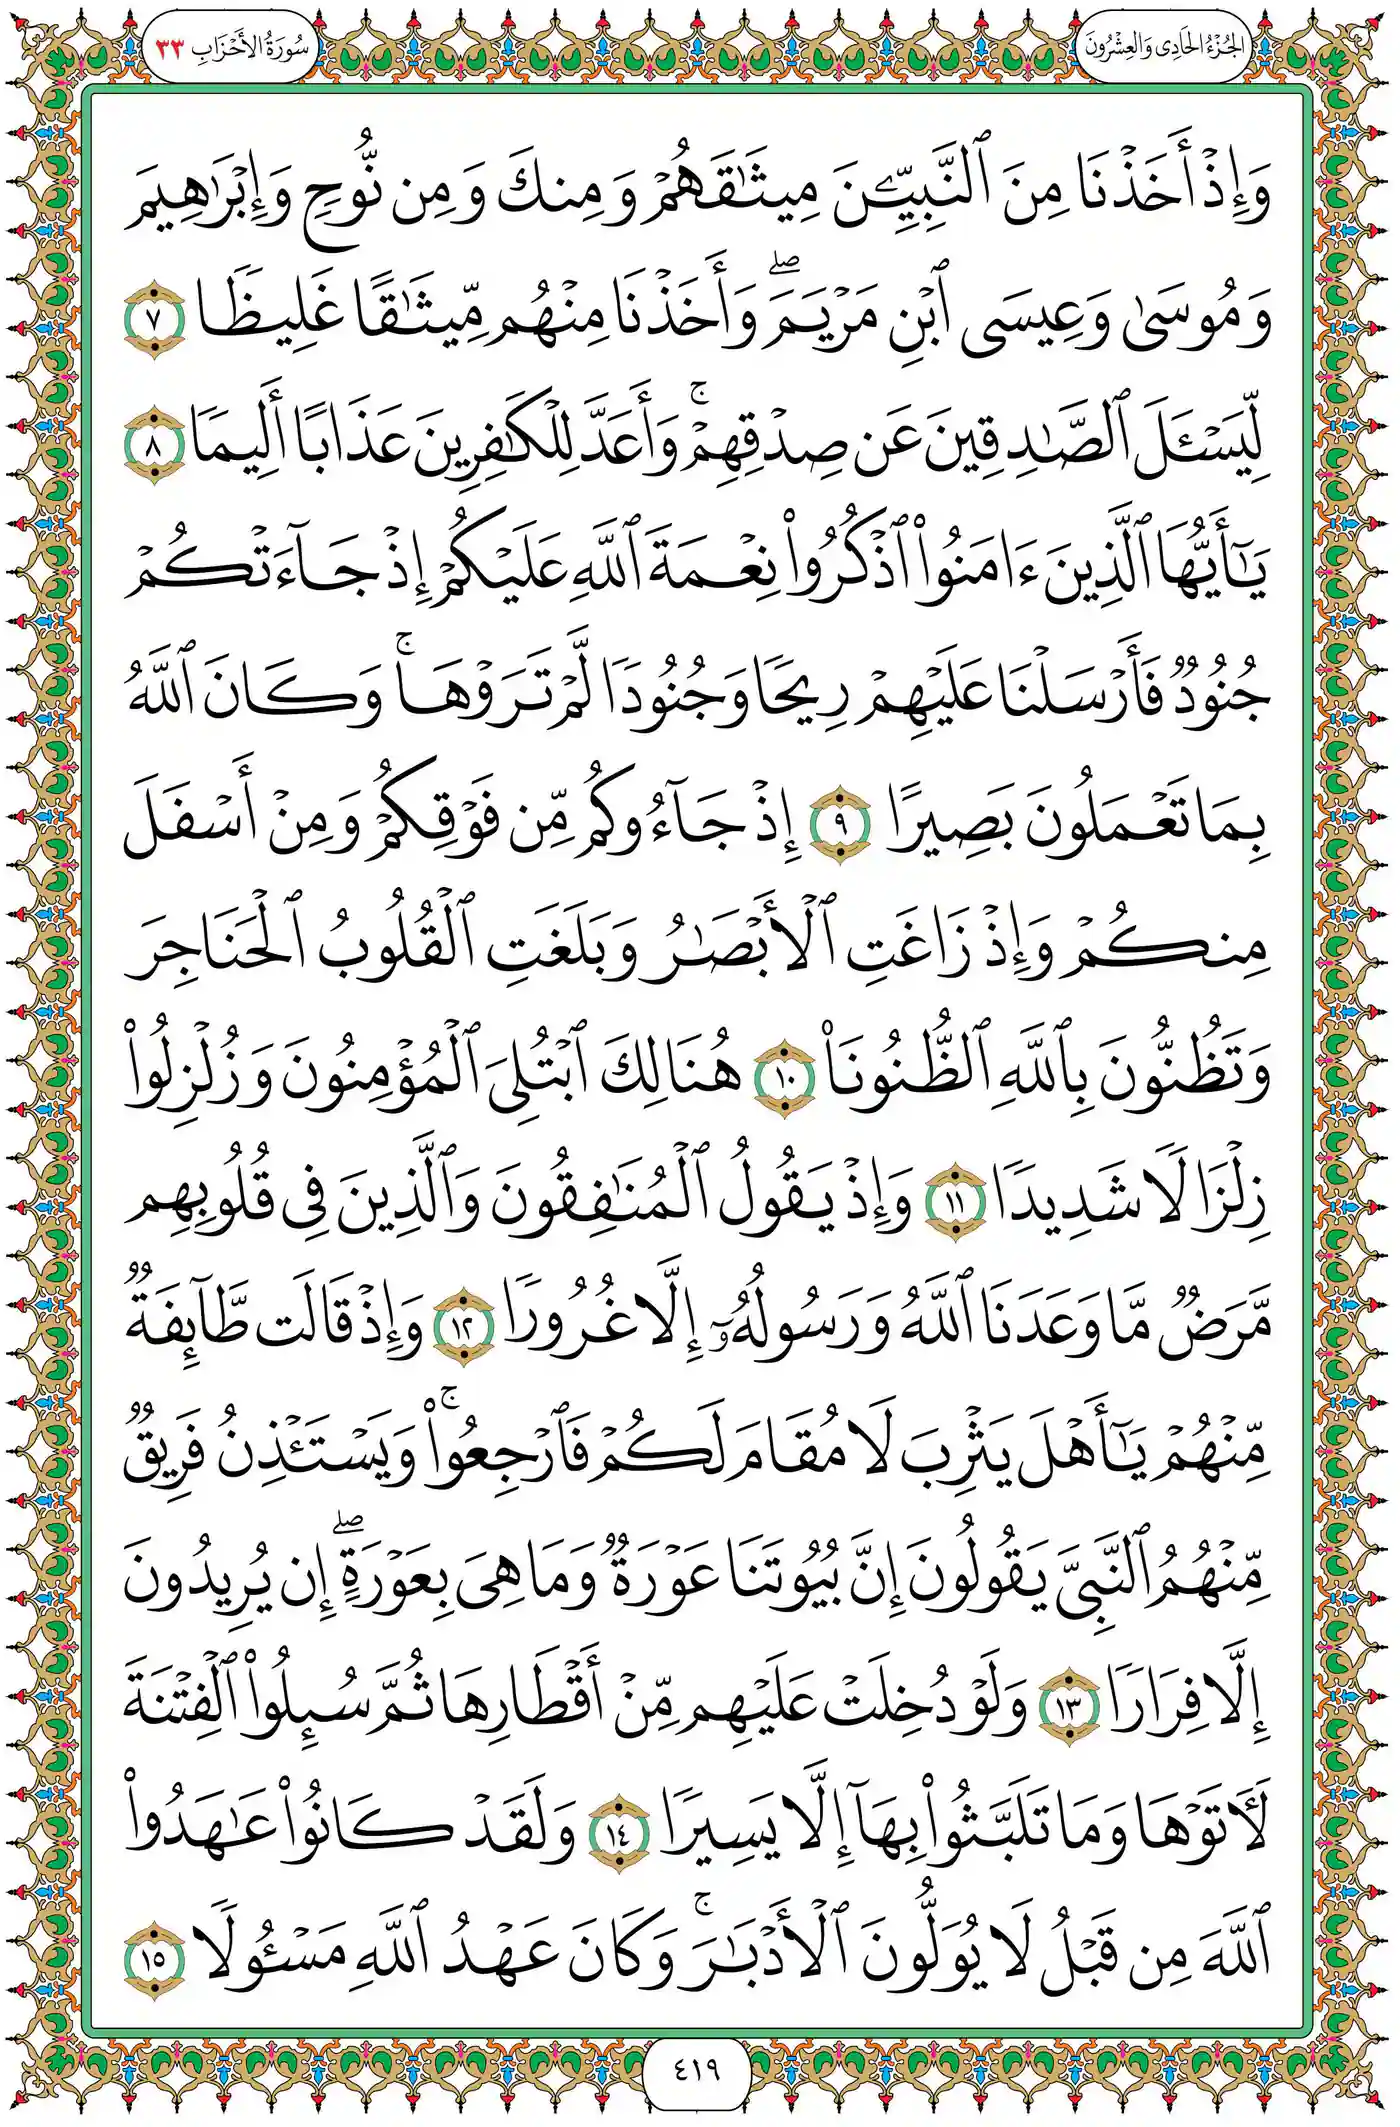 الجُزْءُ الحَادِى وَالعِشْرُونَ
سُورَةُ الأَحْزَابِ ٣٣
وَإِذْ أَخَذْنَا مِنَ ٱلنَّبِيِّـۧنَ مِيثَٰقَهُمْ وَمِنكَ وَمِن نُّوحٍ وَإِبْرَٰهِيمَ
وَمُوسَىٰ وَعِيسَى ٱبْنِ مَرْيَمَۖ وَأَخَذْنَا مِنْهُم مِّيثَٰقًا غَلِيظًا ٧
لِّيَسْـَٔلَ ٱلصَّٰدِقِينَ عَن صِدْقِهِمْۚ وَأَعَدَّ لِلْكَٰفِرِينَ عَذَابًا أَلِيمًا ٨
يَٰٓأَيُّهَا ٱلَّذِينَ ءَامَنُوا۟ ٱذْكُرُوا۟ نِعْمَةَ ٱللَّهِ عَلَيْكُمْ إِذْ جَآءَتْكُمْ
جُنُودٌ فَأَرْسَلْنَا عَلَيْهِمْ رِيحًا وَجُنُودًا لَّمْ تَرَوْهَاۚ وَكَانَ ٱللَّهُ
بِمَا تَعْمَلُونَ بَصِيرًا ٩ إِذْ جَآءُوكُم مِّن فَوْقِكُمْ وَمِنْ أَسْفَلَ
مِنكُمْ وَإِذْ زَاغَتِ ٱلْأَبْصَٰرُ وَبَلَغَتِ ٱلْقُلُوبُ ٱلْحَنَاجِرَ
وَتَظُنُّونَ بِٱللَّهِ ٱلظُّنُونَا۠ ١٠ هُنَالِكَ ٱبْتُلِىَ ٱلْمُؤْمِنُونَ وَزُلْزِلُوا۟
زِلْزَالًا شَدِيدًا ١١ وَإِذْ يَقُولُ ٱلْمُنَٰفِقُونَ وَٱلَّذِينَ فِى قُلُوبِهِم
مَّرَضٌ مَّا وَعَدَنَا ٱللَّهُ وَرَسُولُهُۥٓ إِلَّا غُرُورًا ١٢ وَإِذْ قَالَت طَّآئِفَةٌ
مِّنْهُمْ يَٰٓأَهْلَ يَثْرِبَ لَا مُقَامَ لَكُمْ فَٱرْجِعُوا۟ۚ وَيَسْتَـْٔذِنُ فَرِيقٌ
مِّنْهُمُ ٱلنَّبِىَّ يَقُولُونَ إِنَّ بُيُوتَنَا عَوْرَةٌ وَمَا هِىَ بِعَوْرَةٍۖ إِن يُرِيدُونَ
إِلَّا فِرَارًا ١٣ وَلَوْ دُخِلَتْ عَلَيْهِم مِّنْ أَقْطَارِهَا ثُمَّ سُئِلُوا۟ ٱلْفِتْنَةَ
لَـَٔاتَوْهَا وَمَا تَلَبَّثُوا۟ بِهَآ إِلَّا يَسِيرًا ١٤ وَلَقَدْ كَانُوا۟ عَٰهَدُوا۟
ٱللَّهَ مِن قَبْلُ لَا يُوَلُّونَ ٱلْأَدْبَٰرَۚ وَكَانَ عَهْدُ ٱللَّهِ مَسْـُٔولًا ١٥
٤١٩